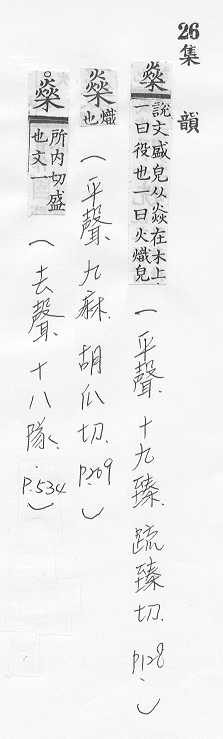 26
集韻
燊 說文盛皃从焱在木上
一曰役也一曰火熾皃
(平聲.十九臻.䟽臻切.P.128.)
燊 熾也
(平聲.九麻.胡瓜切.P.209)
燊 所內切盛
也文一
(去聲.十八隊.P.534)